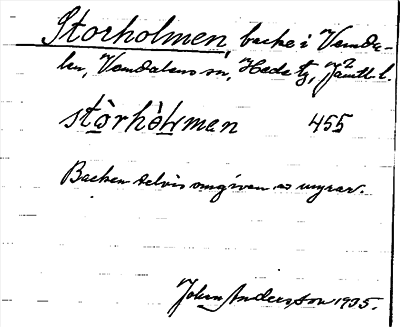 Storholmen, backe i Vemda-
len, Vemdalens sn, Hede tg, Jämtl. l.
stòrhòlmen 455
Backen delvis omgiven av myrar.
John Andersson 1935.